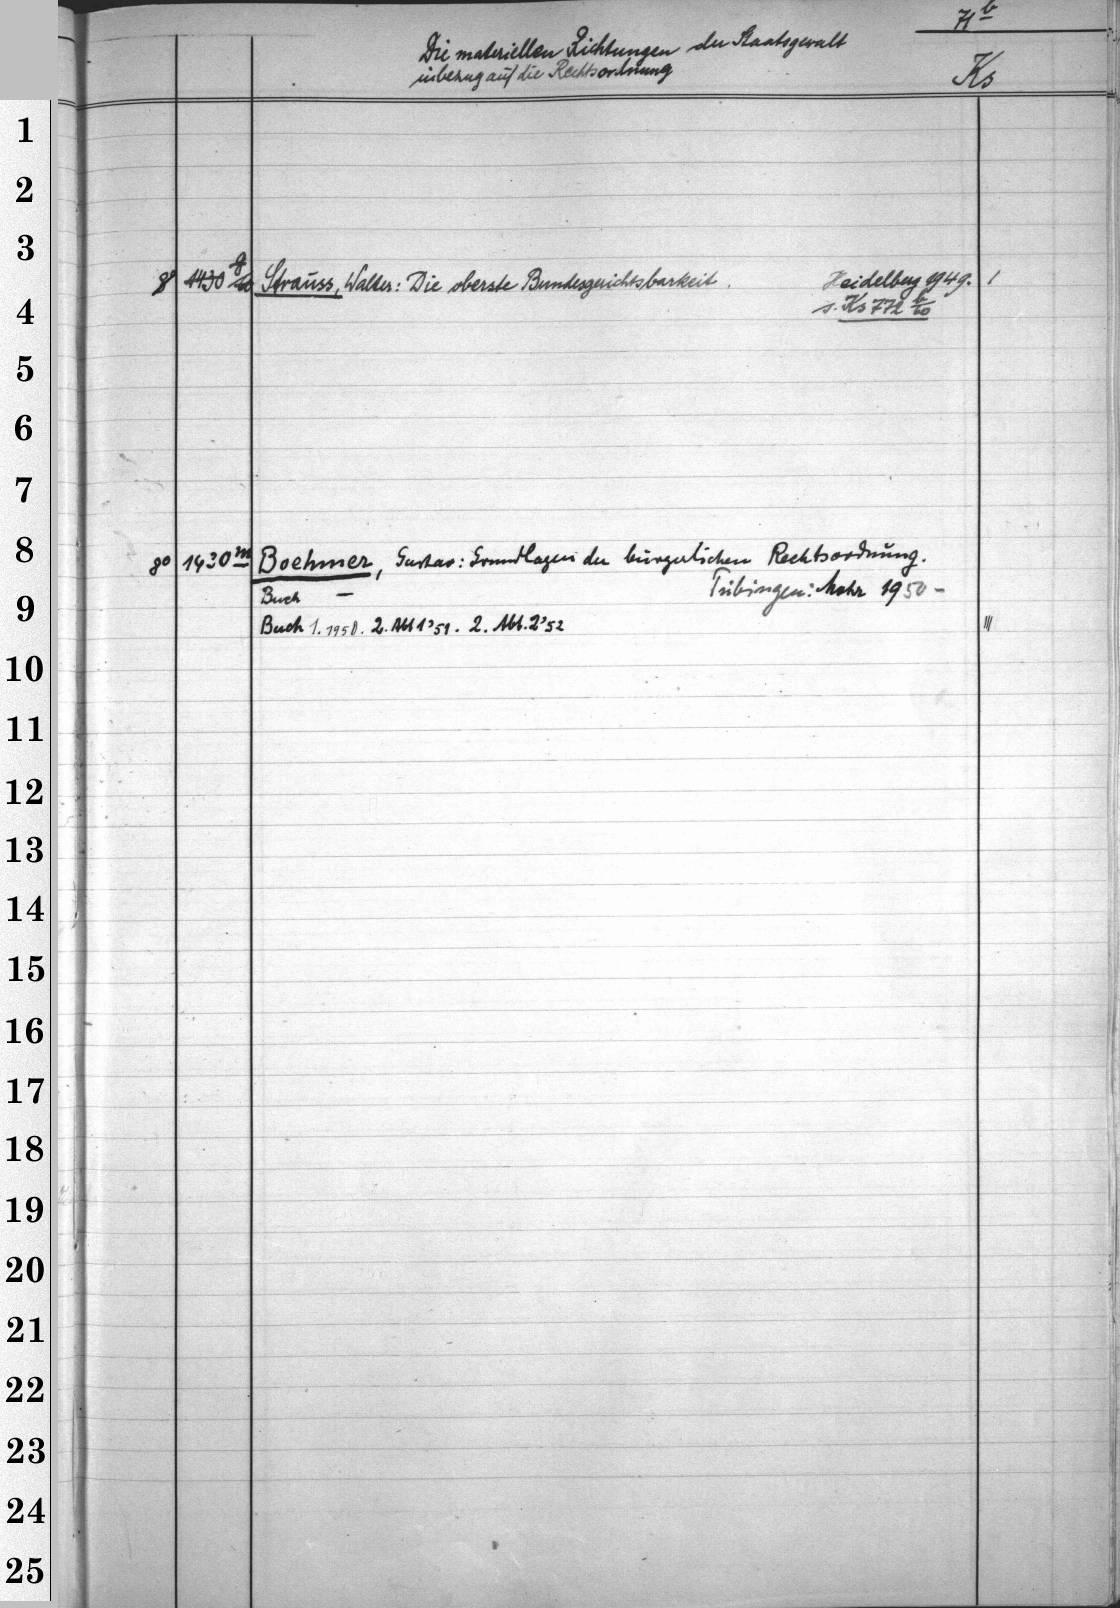 71 b
Die materiellen Richtungen der Staatsgewalt
inbezug auf die Rechtsordnung
Ks
1
2
3
8° 1430 Strauss, Walter: Die oberste Bundesgerichtsbarkeit. Heidelberg 1949. 1
s. Ks 772 b/60
4
5
6
7
8
8° 1430 m Boehmer, Gustav: Grundlagen der bürgerlichen Rechtsordnung.
Buch — Tübingen: Mohr 1950 -
9
Buch 1. 1950. 2. Abt 1 '51. 2. Abt. 2 '52 III
10
11
12
13
14
15
16
17
18
19
20
21
22
23
24
25